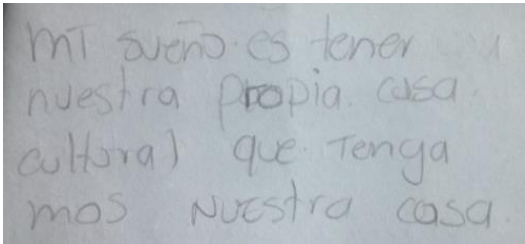 mi sueño es tener
nuestra propia. casa.
cultural que Tenga
mos NUESTRA casa.